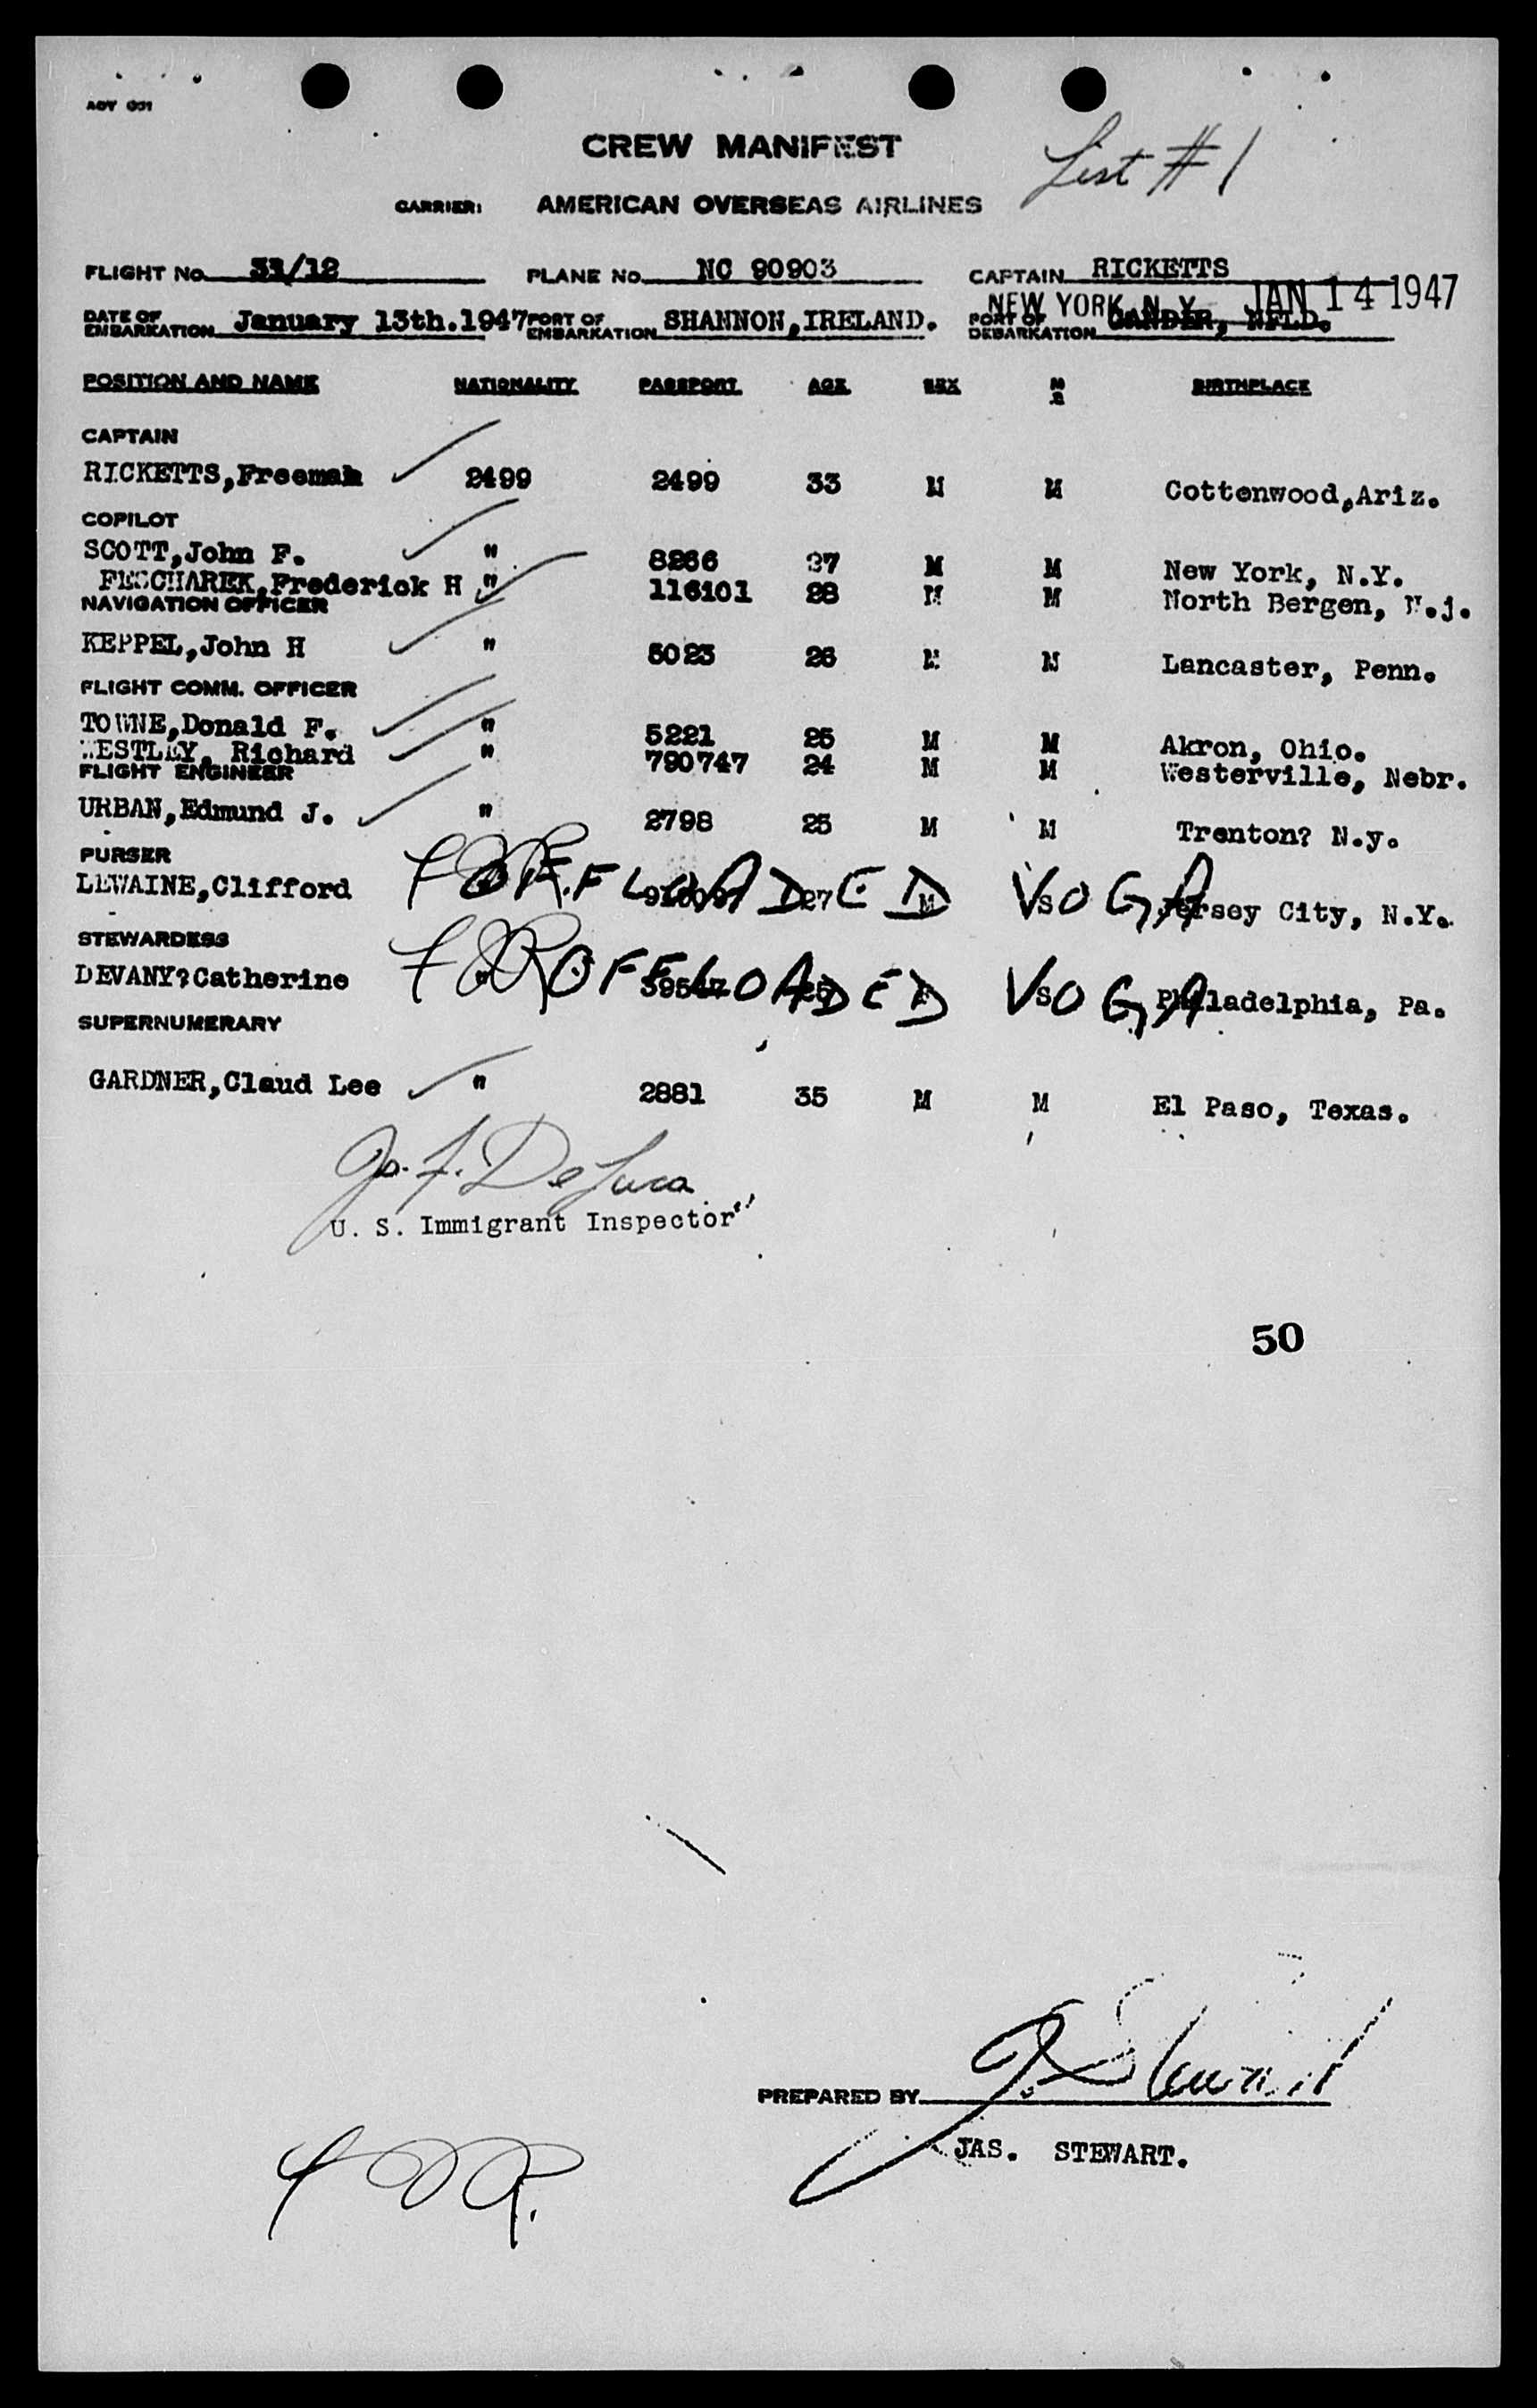 AOY 001
CREW MANIFEST
List # 1
CARRIER: AMERICAN OVERSEAS AIRLINES
FLIGHT No. 31/12 PLANE No. NC 90903 CAPTAIN RICKETTS
NEW YORK, N.Y. JAN 14 1947
DATE OF EMBARKATION January 13th.1947 PORT OF EMBARKATION SHANNON,IRELAND. PORT OF DEBARKATION GANDER, NFLD.
POSITION AND NAME NATIONALITY PASSPORT AGE SEX M S BIRTHPLACE
CAPTAIN
RICKETTS,Freeman 2499 2499 33 M M Cottenwood,Ariz.
COPILOT
SCOTT,John F. " 8266 27 M M New York, N.Y.
PESCHAREK,Frederick H " 116101 28 M M North Bergen, N.j.
NAVIGATION OFFICER
KEPPEL,John H " 5023 26 M M Lancaster, Penn.
FLIGHT COMM. OFFICER
TOWNE,Donald F. " 5221 25 M M Akron, Ohio.
WESTLEY, Richard " 790747 24 M M Westerville, Nebr.
FLIGHT ENGINEER
URBAN,Edmund J. " 2798 25 M M Trenton? N.y.
PURSER
LEWAINE,Clifford OFFLOADED 27 M S VOGA Jersey City, N.Y.
STEWARDESS
DEVANY?Catherine " OFFLOADED S VOGA Philadelphia, Pa.
SUPERNUMERARY
GARDNER,Claud Lee " 2881 35 M M El Paso, Texas.
Jo. F. DeLuca
U. S. Immigrant Inspector
50
PREPARED BY J. Stewart
JAS. STEWART.